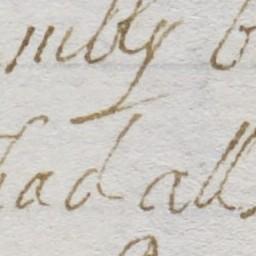 mbly b
had all